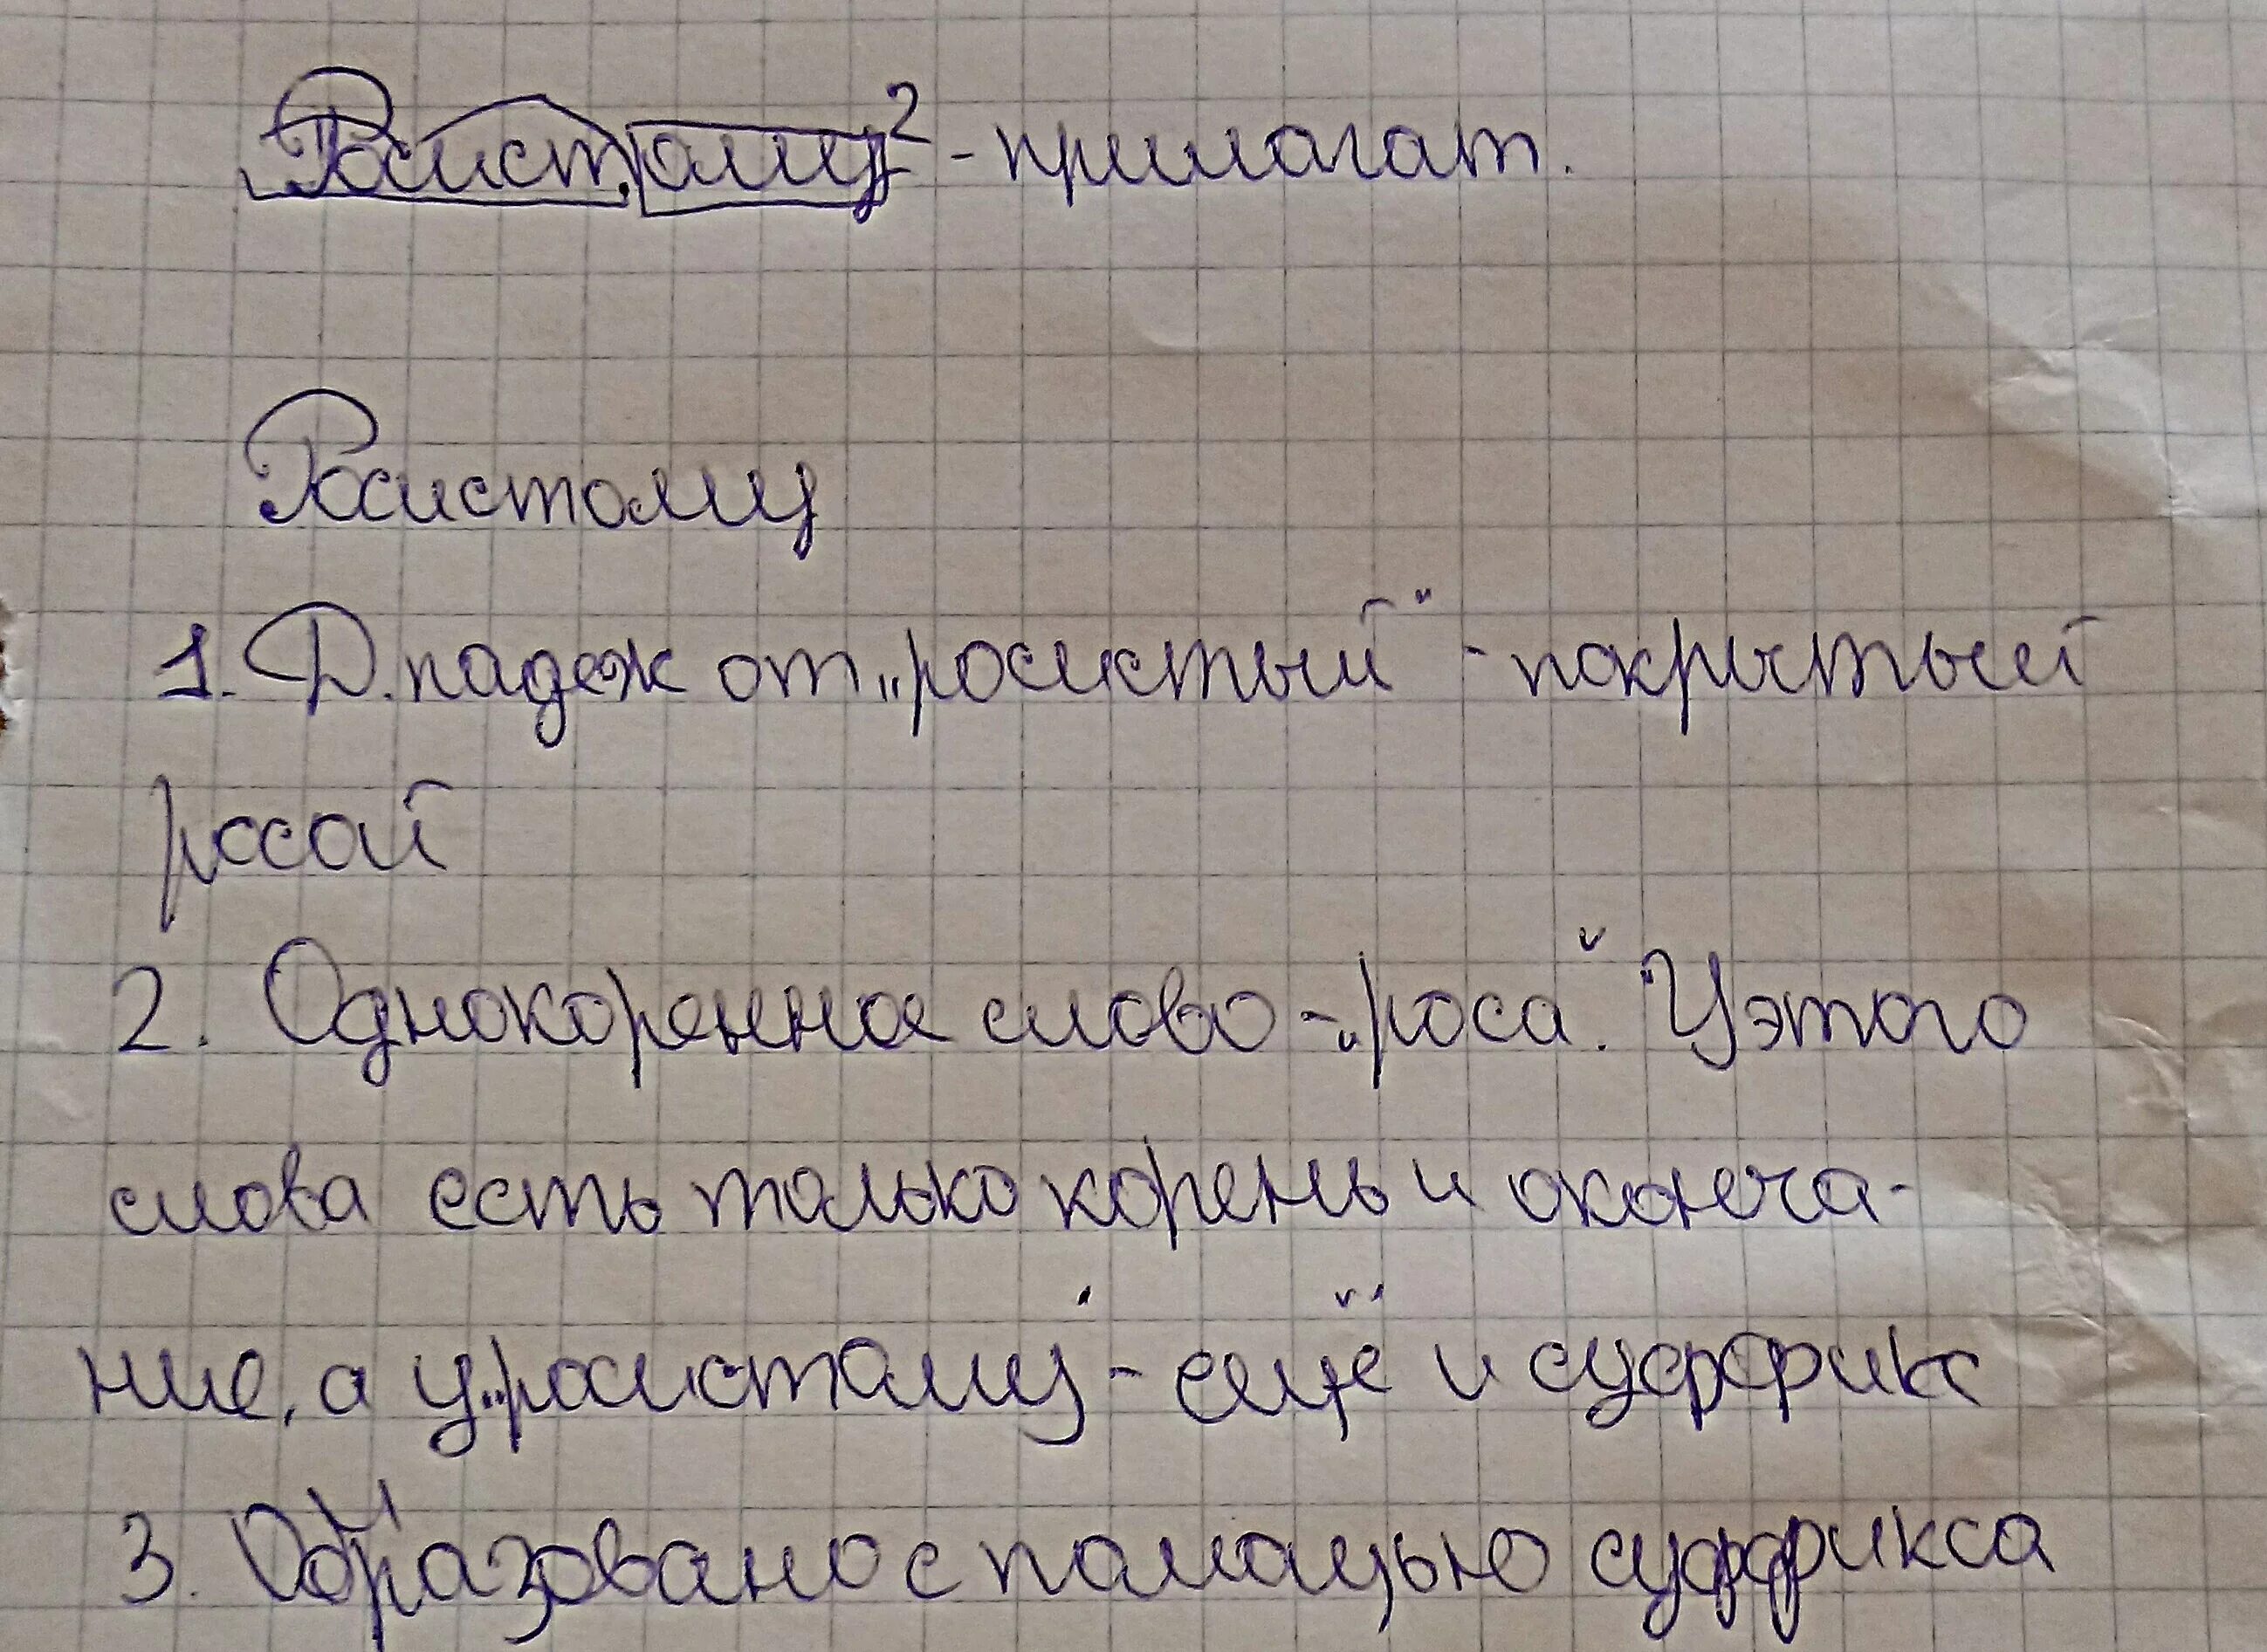 Росистому² - прилагат.
Росистому
1. Д. падеж от „росистый" - покрытый
росой
2. Однокоренное слово - „роса". У этого
слова есть только корень и оконча-
ние, а у „росистому" - ещё и суффикс
3. Образовано с помощью суффикса